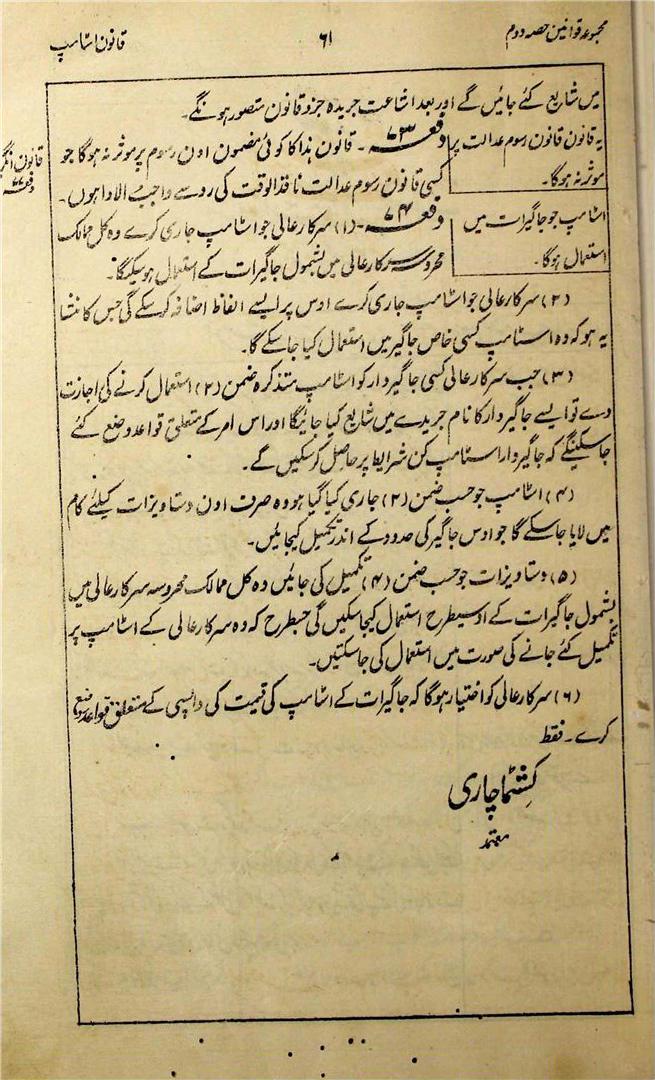 مجموعہ قوانین حصہ دوم
۶۱
قانون اسٹامپ
میں شایع کئے جائیں گے اور بعد اشاعت جریدہ جزو قانون متصور ہونگے۔
یہ قانون قانون رسوم عدالت پر
موثر نہ ہوگا۔
دفعہ ۷۳۔ قانون ہذا کا کوئی مضمون اون رسوم پر موثر نہ ہوگا جو
کسی قانون رسوم عدالت نافذ الوقت کی رو سے واجب الادا ہوں۔
قانون انگر
دفعہ ۷۷
اسٹامپ جو جاگیرات میں
استعمال ہوگا۔
دفعہ ۷۴۔ (۱) سرکار عالی جو اسٹامپ جاری کرے وہ کل ممالک
محروسہ سرکار عالی میں بشمول جاگیرات کے استعمال ہو سکیگا۔
(۲) سرکار عالی جو اسٹامپ جاری کرے اوس پر ایسے الفاظ اضافہ کر سکے گی جس کا منشا
یہ ہو کہ وہ اسٹامپ کسی خاص جاگیر میں استعمال کیا جا سکے گا۔
(۳) جب سرکار عالی کسی جاگیردار کو اسٹامپ متذکرہ ضمن (۲) استعمال کرنے کی اجازت
دے تو ایسے جاگیردار کا نام جریدے میں شایع کیا جائیگا اور اس امر کے متعلق قواعد وضع کئے
جا سکینگے کہ جاگیردار اسٹامپ کن شرایط پر حاصل کر سکیں گے۔
(۴) اسٹامپ جو حسب ضمن (۲) جاری کیا گیا ہو وہ صرف اون دستاویزات کیلئے کام
میں لایا جا سکے گا جو اوس جاگیر کی حدود کے اندر تکمیل کیجائیں۔
(۵) دستاویزات جو حسب ضمن (۴) تکمیل کی جائیں وہ کل ممالک محروسہ سرکار عالی میں
بشمول جاگیرات کے اوسیطرح استعمال کیجا سکیں گی جسطرح کہ وہ سرکار عالی کے اسٹامپ پر
تکمیل کئے جانے کی صورت میں استعمال کی جا سکتیں۔
(۶) سرکار عالی کو اختیار ہوگا کہ جاگیرات کے اسٹامپ کی قیمت کی واپسی کے متعلق قواعد وضع
کرے۔ فقط
کشٹماچاری
معتمد